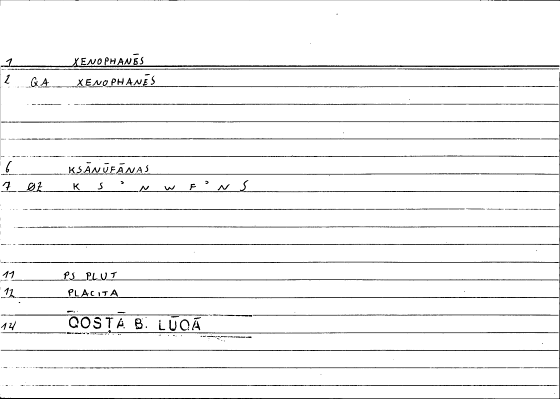 1 XENOPHANĒS
2 GA XENOPHANĒS
6 KSĀNŪFĀNAS
7 ØZ K S ' N W F ' N S
11 PS PLUT
12 PLACITA
14 QOSṬĀ B. LŪQĀ